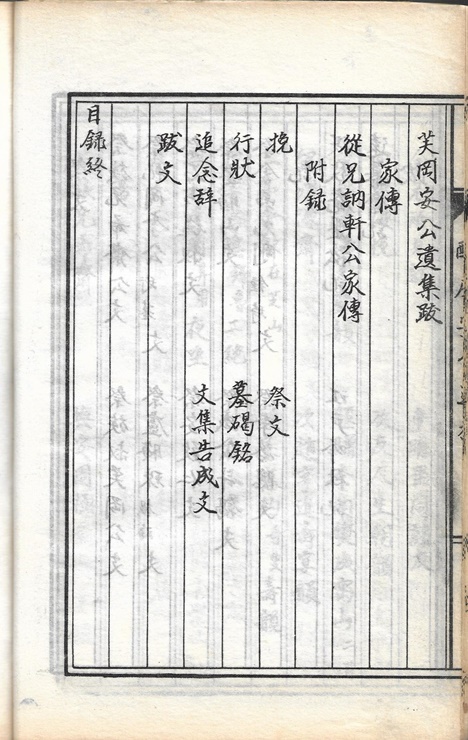 芙岡安公遺集跋
家傳
從兄訥軒公家傳
附録
挽 祭文
行狀 墓碣銘
追念辞 文集告成文
跋文
目録終